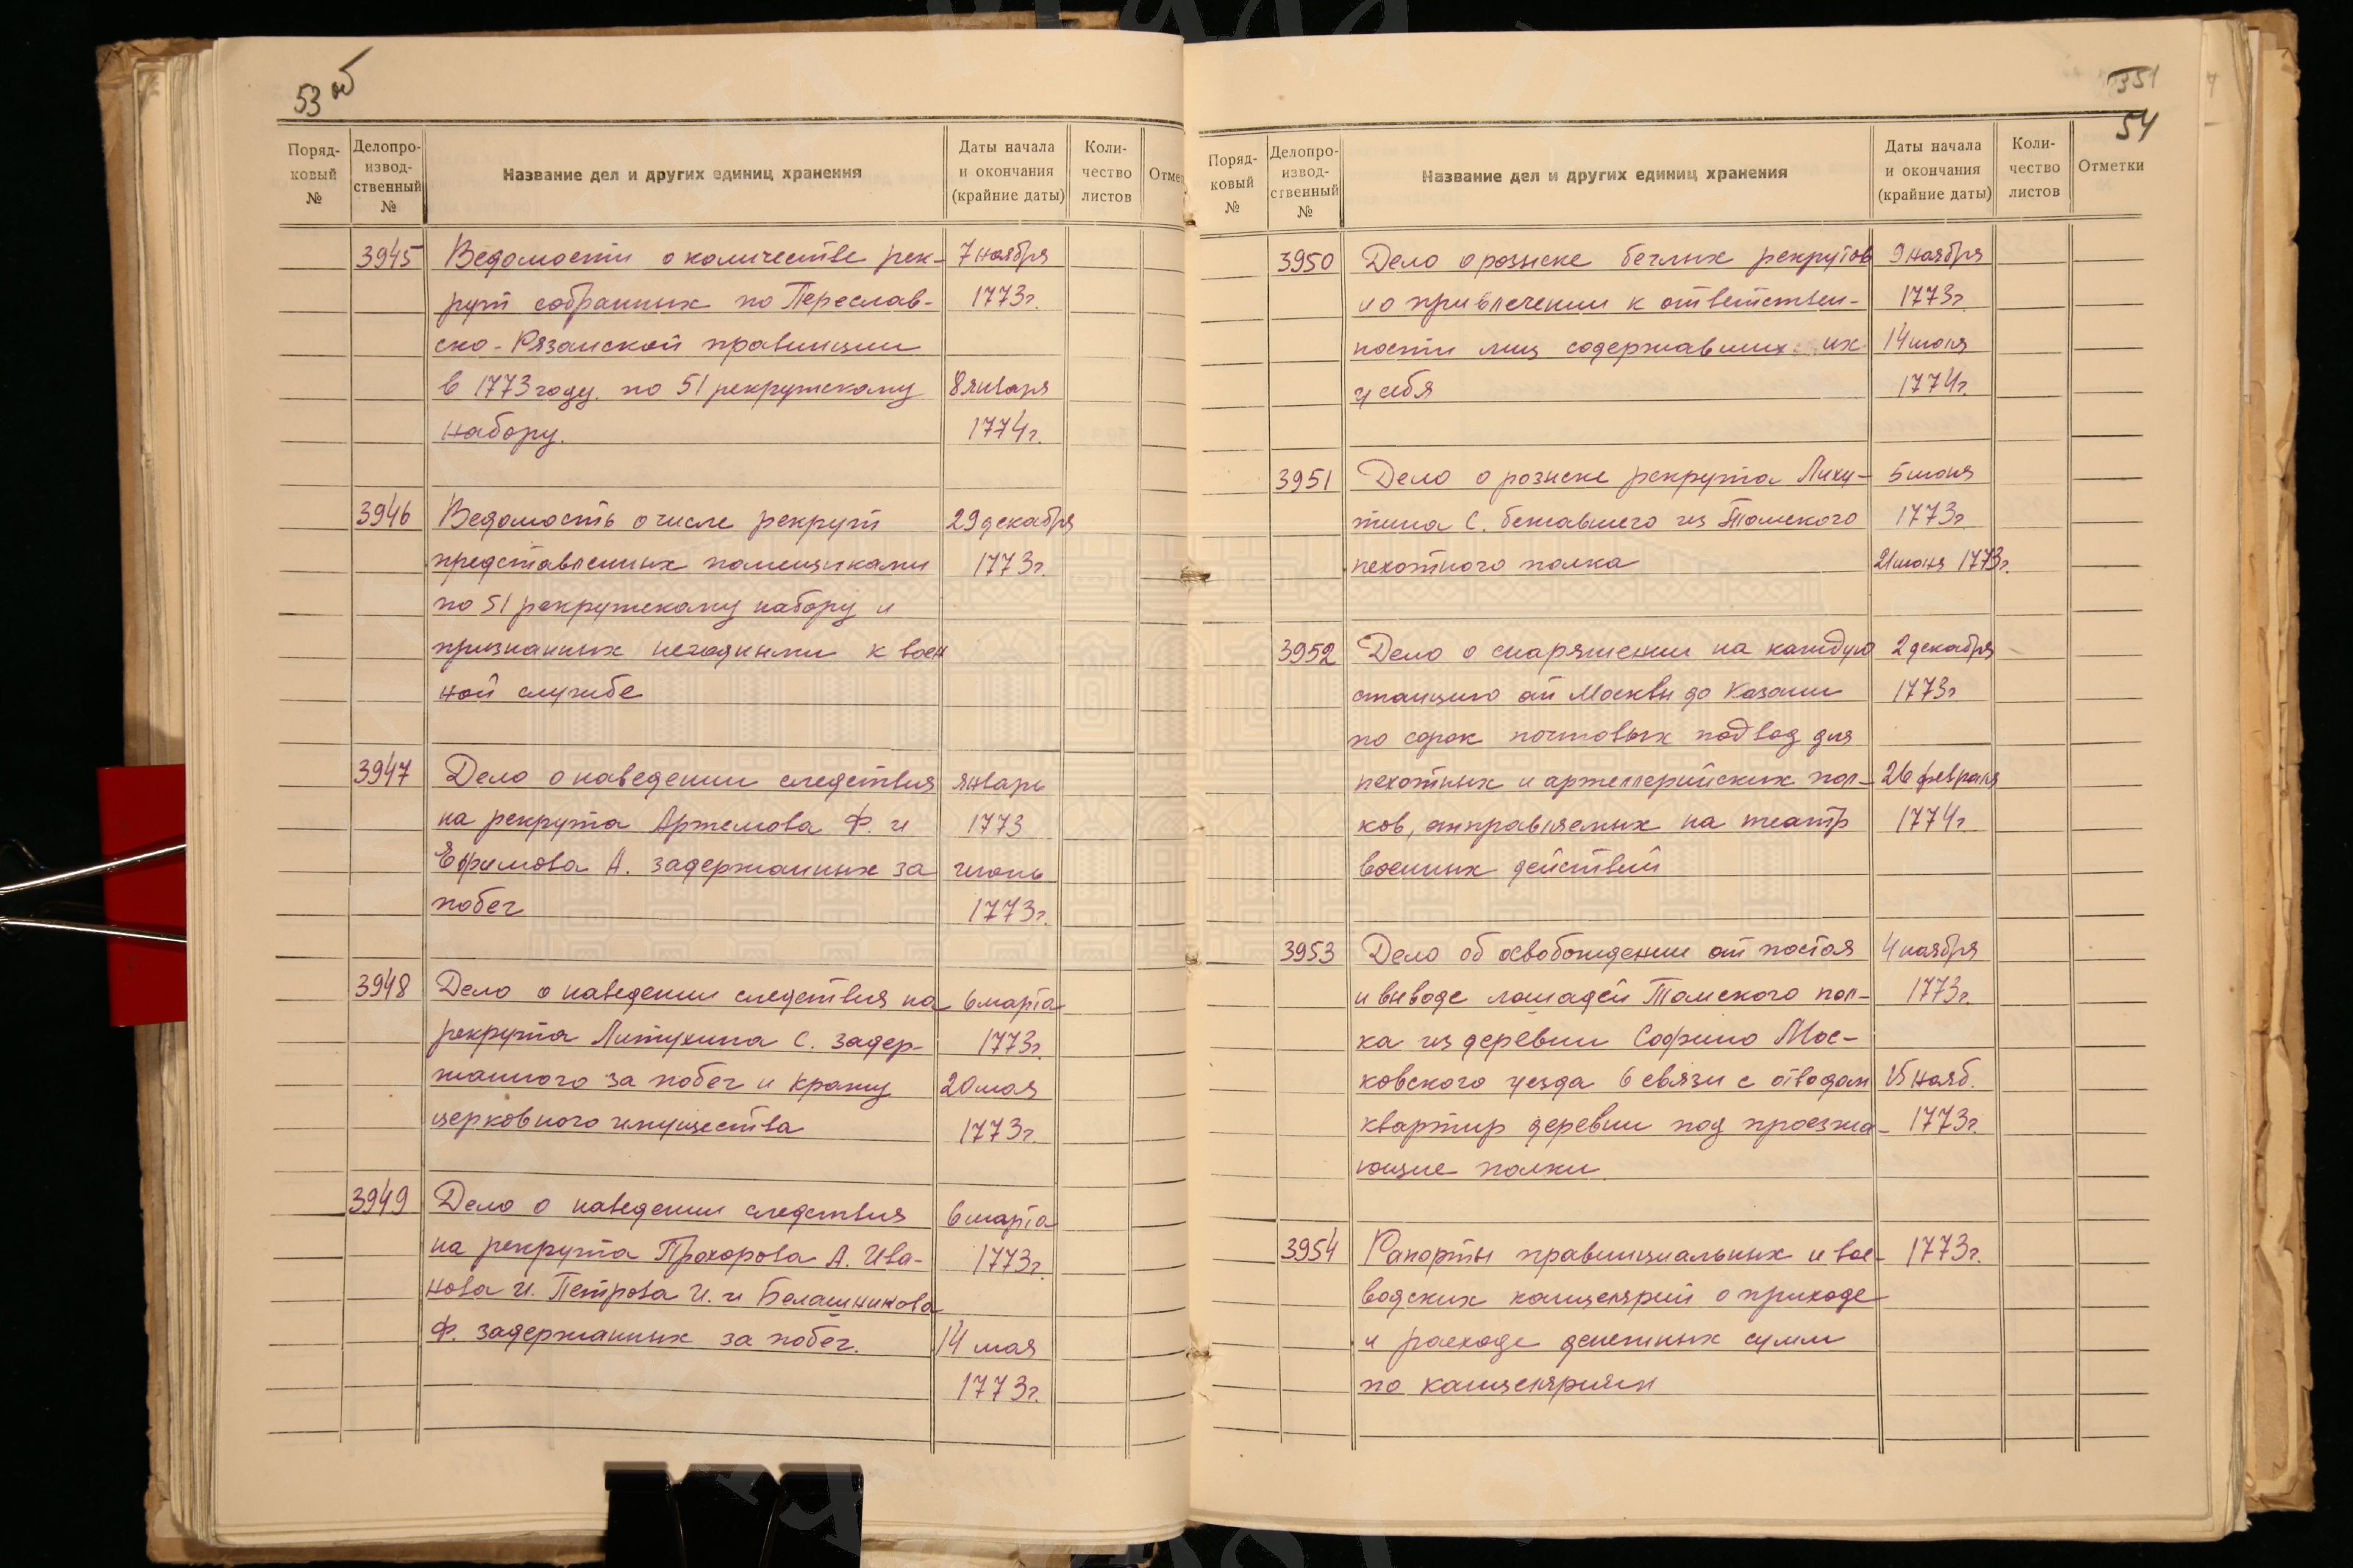 53 об
Поряд-
ковый
№
Делопро-
извод-
ственный
№
Название дел и других единиц хранения
Даты начала
и окончания
(крайние даты)
Коли-
чество
листов
Отмет
3945 Ведомости о количестве рек- 7 ноября
рут собранных по Переслав- 1773г.
ско-Рязанской провинции
в 1773 году по 51 рекрутскому 8 января
набору. 1774г.
3946 Ведомость о числе рекрут 29 декабря
представленных помещиками 1773г.
по 51 рекрутскому набору и
признанных негодными к воен
ной службе
3947 Дело о наведении следствия январь
на рекрута Артемова Ф. и 1773
Ефимова А. задержанных за июнь
побег 1773г.
3948 Дело о наведении следствия на 6 марта
рекрута Литухина С. задер- 1773г.
жанного за побег и кражу 20 мая
церковного имущества 1773г.
3949 Дело о наведении следствия 6 марта
на рекрута Прохорова А. Ива- 1773г.
нова И. Петрова И. и Белашникова
Ф. задержанных за побег. 14 мая
1773г.
351
54
Поряд-
ковый
№
Делопро-
извод-
ственный
№
Название дел и других единиц хранения
Даты начала
и окончания
(крайние даты)
Коли-
чество
листов
Отметки
3950 Дело о розыске беглых рекрутов 9 ноября
и о привлечении к ответствен- 1773г
ности лиц содержавших их 14 июля
у себя 1774г.
3951 Дело о розыске рекрута Лиху- 5 июня
тина С. бежавшего из Томского 1773г
пехотного полка 21 июня 1773г.
3952 Дело о снаряжении на каждую 2 декабря
станцию от Москвы до Казани 1773г
по сорок почтовых подвод для
пехотных и артеллерийских пол- 26 февраля
ков, отправляемых на театр 1774г
военных действий
3953 Дело об освобождении от постоя 4 ноября
и выводе лошадей Томского пол- 1773г.
ка из деревни Софьино Мос-
ковского уезда в связи с отводом 15 нояб.
квартир деревни под проезжа- 1773г.
ющие полки
3954 Рапорты правинциальных и вое- 1773г.
водских канцелярий о приходе
и расходе денежных сумм
по канцелярии